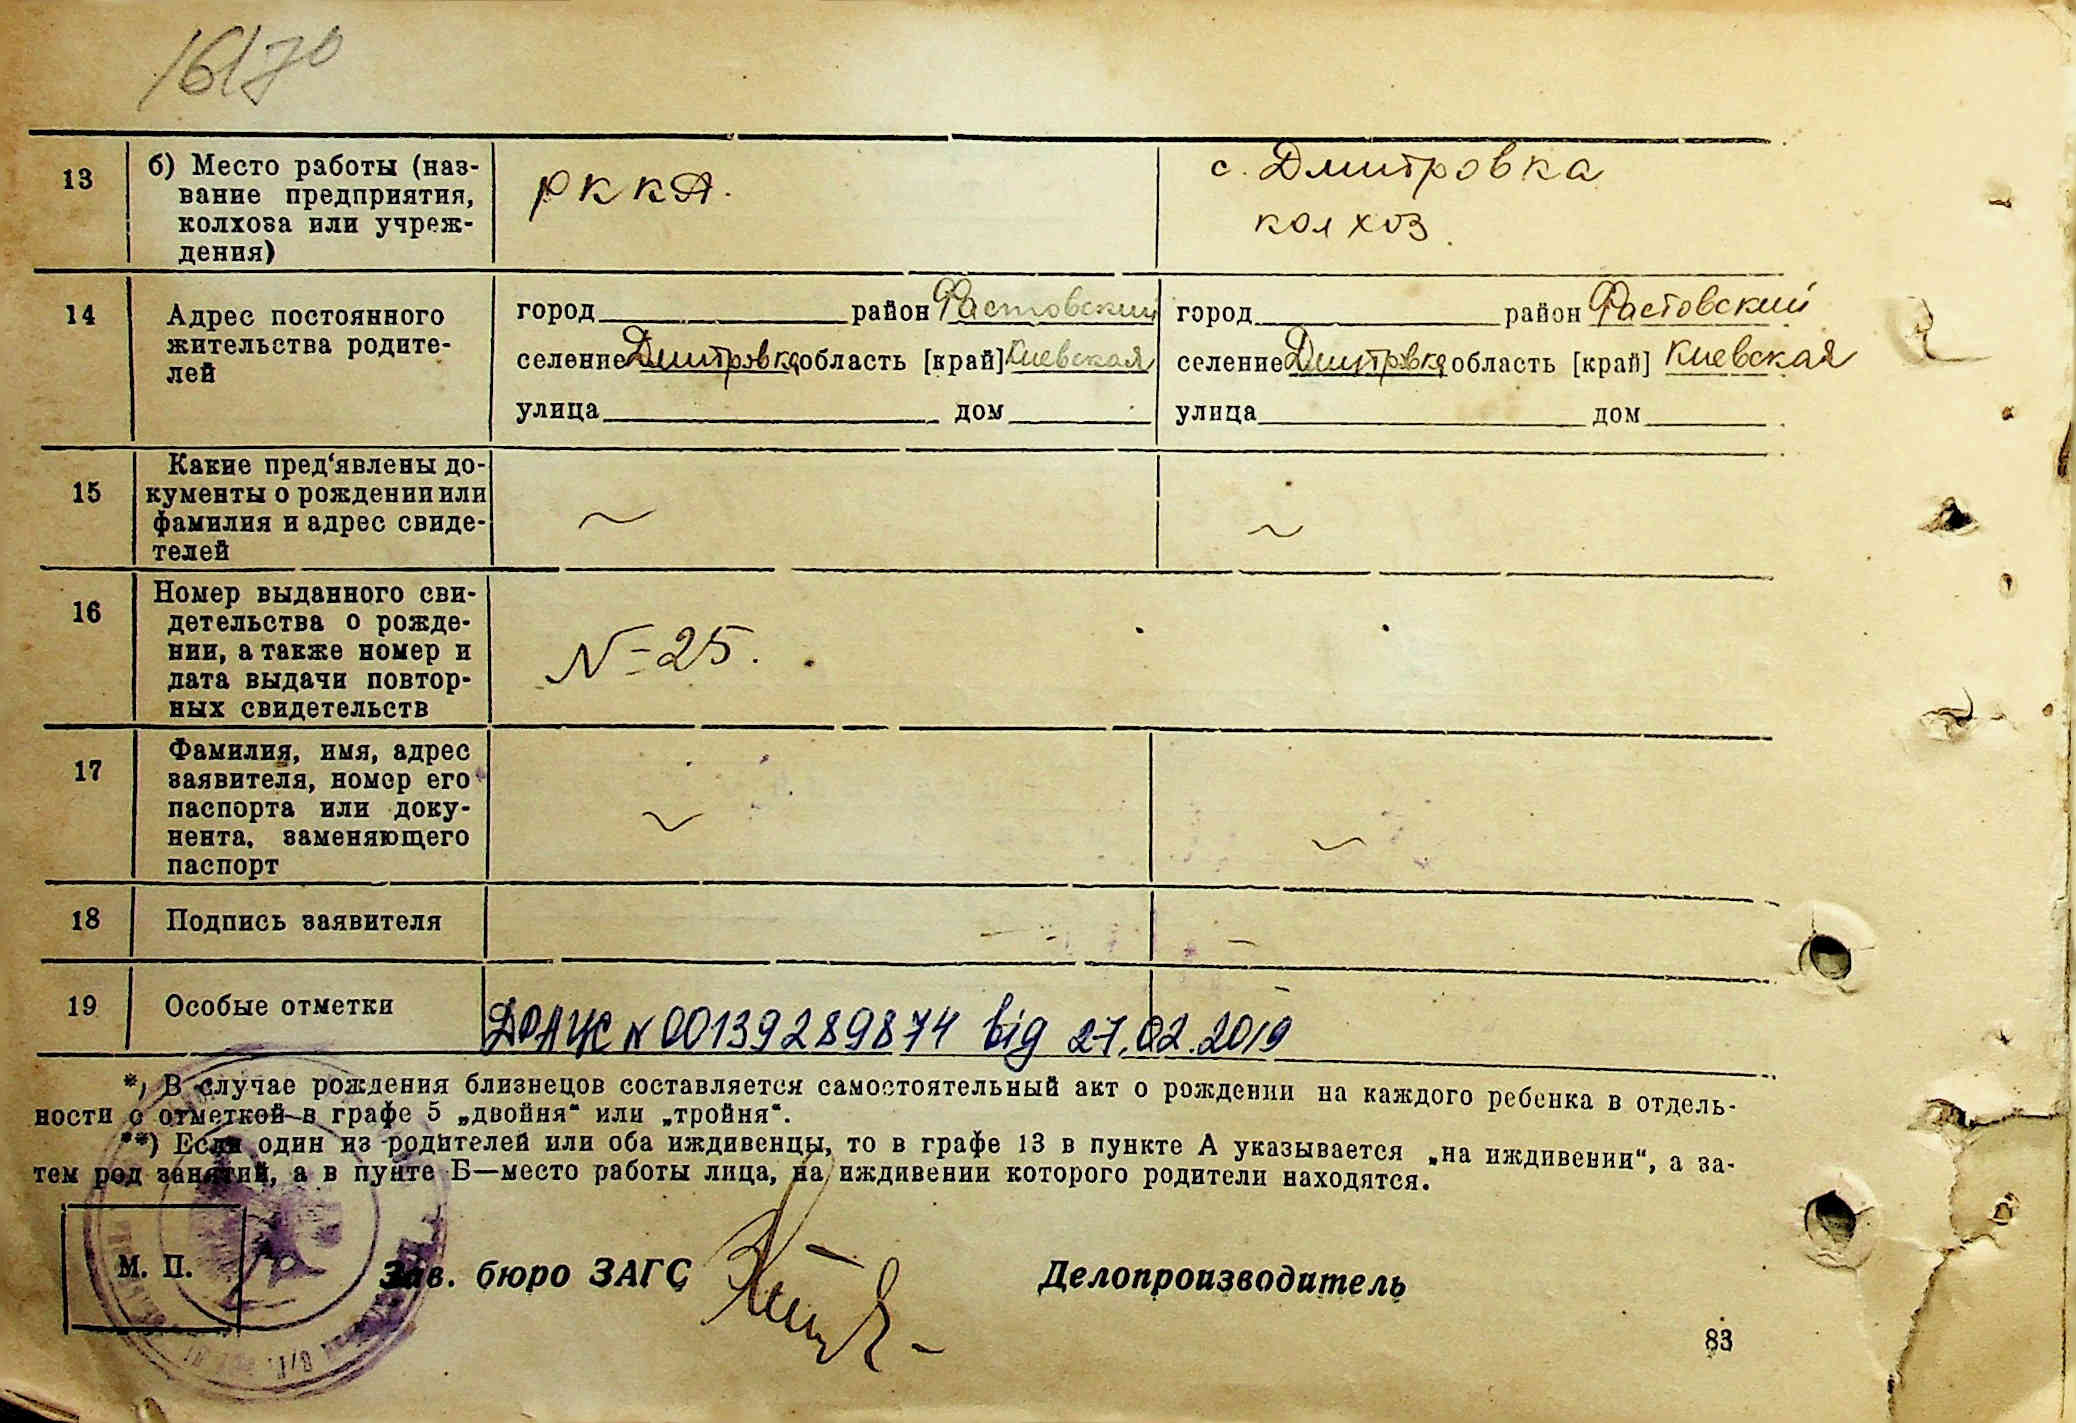 13
б) Место работы (наз-
вание предприятия,
колхоза или учреж-
дения)
РККА.
с. Дмитровка
колхоз.
14
Адрес постоянного
жительства родите-
лей
город район Фастовский
селение Дмитровка область [край] Киевская
улица дом
город район Фастовский
селение Дмитровка область [край] Киевская
улица дом
15
Какие пред‘явлены до-
кументы о рождении или
фамилия и адрес свиде-
телей
~
~
16
Номер выданного сви-
детельства о рожде-
нии, а также номер и
дата выдачи повтор-
ных свидетельств
N=25.
17
Фамилия, имя, адрес
заявителя, номер его
паспорта или доку-
нента, заменяющего
паспорт
~
~
18
Подпись заявителя
19
Особые отметки
N 00139289874 від 27.02.2019
*) В случае рождения близнецов составляется самостоятельный акт о рождении на каждого ребенка в отдель-
ности с отметкой в графе 5 „двойня“ или „тройня“.
**) Если один из родителей или оба иждивенцы, то в графе 13 в пункте А указывается „на иждивении“, а за-
тем род занятий, а в пункте Б—место работы лица, на иждивении которого родители находятся.
М. П.
Зав. бюро ЗАГС
Делопроизводитель
83